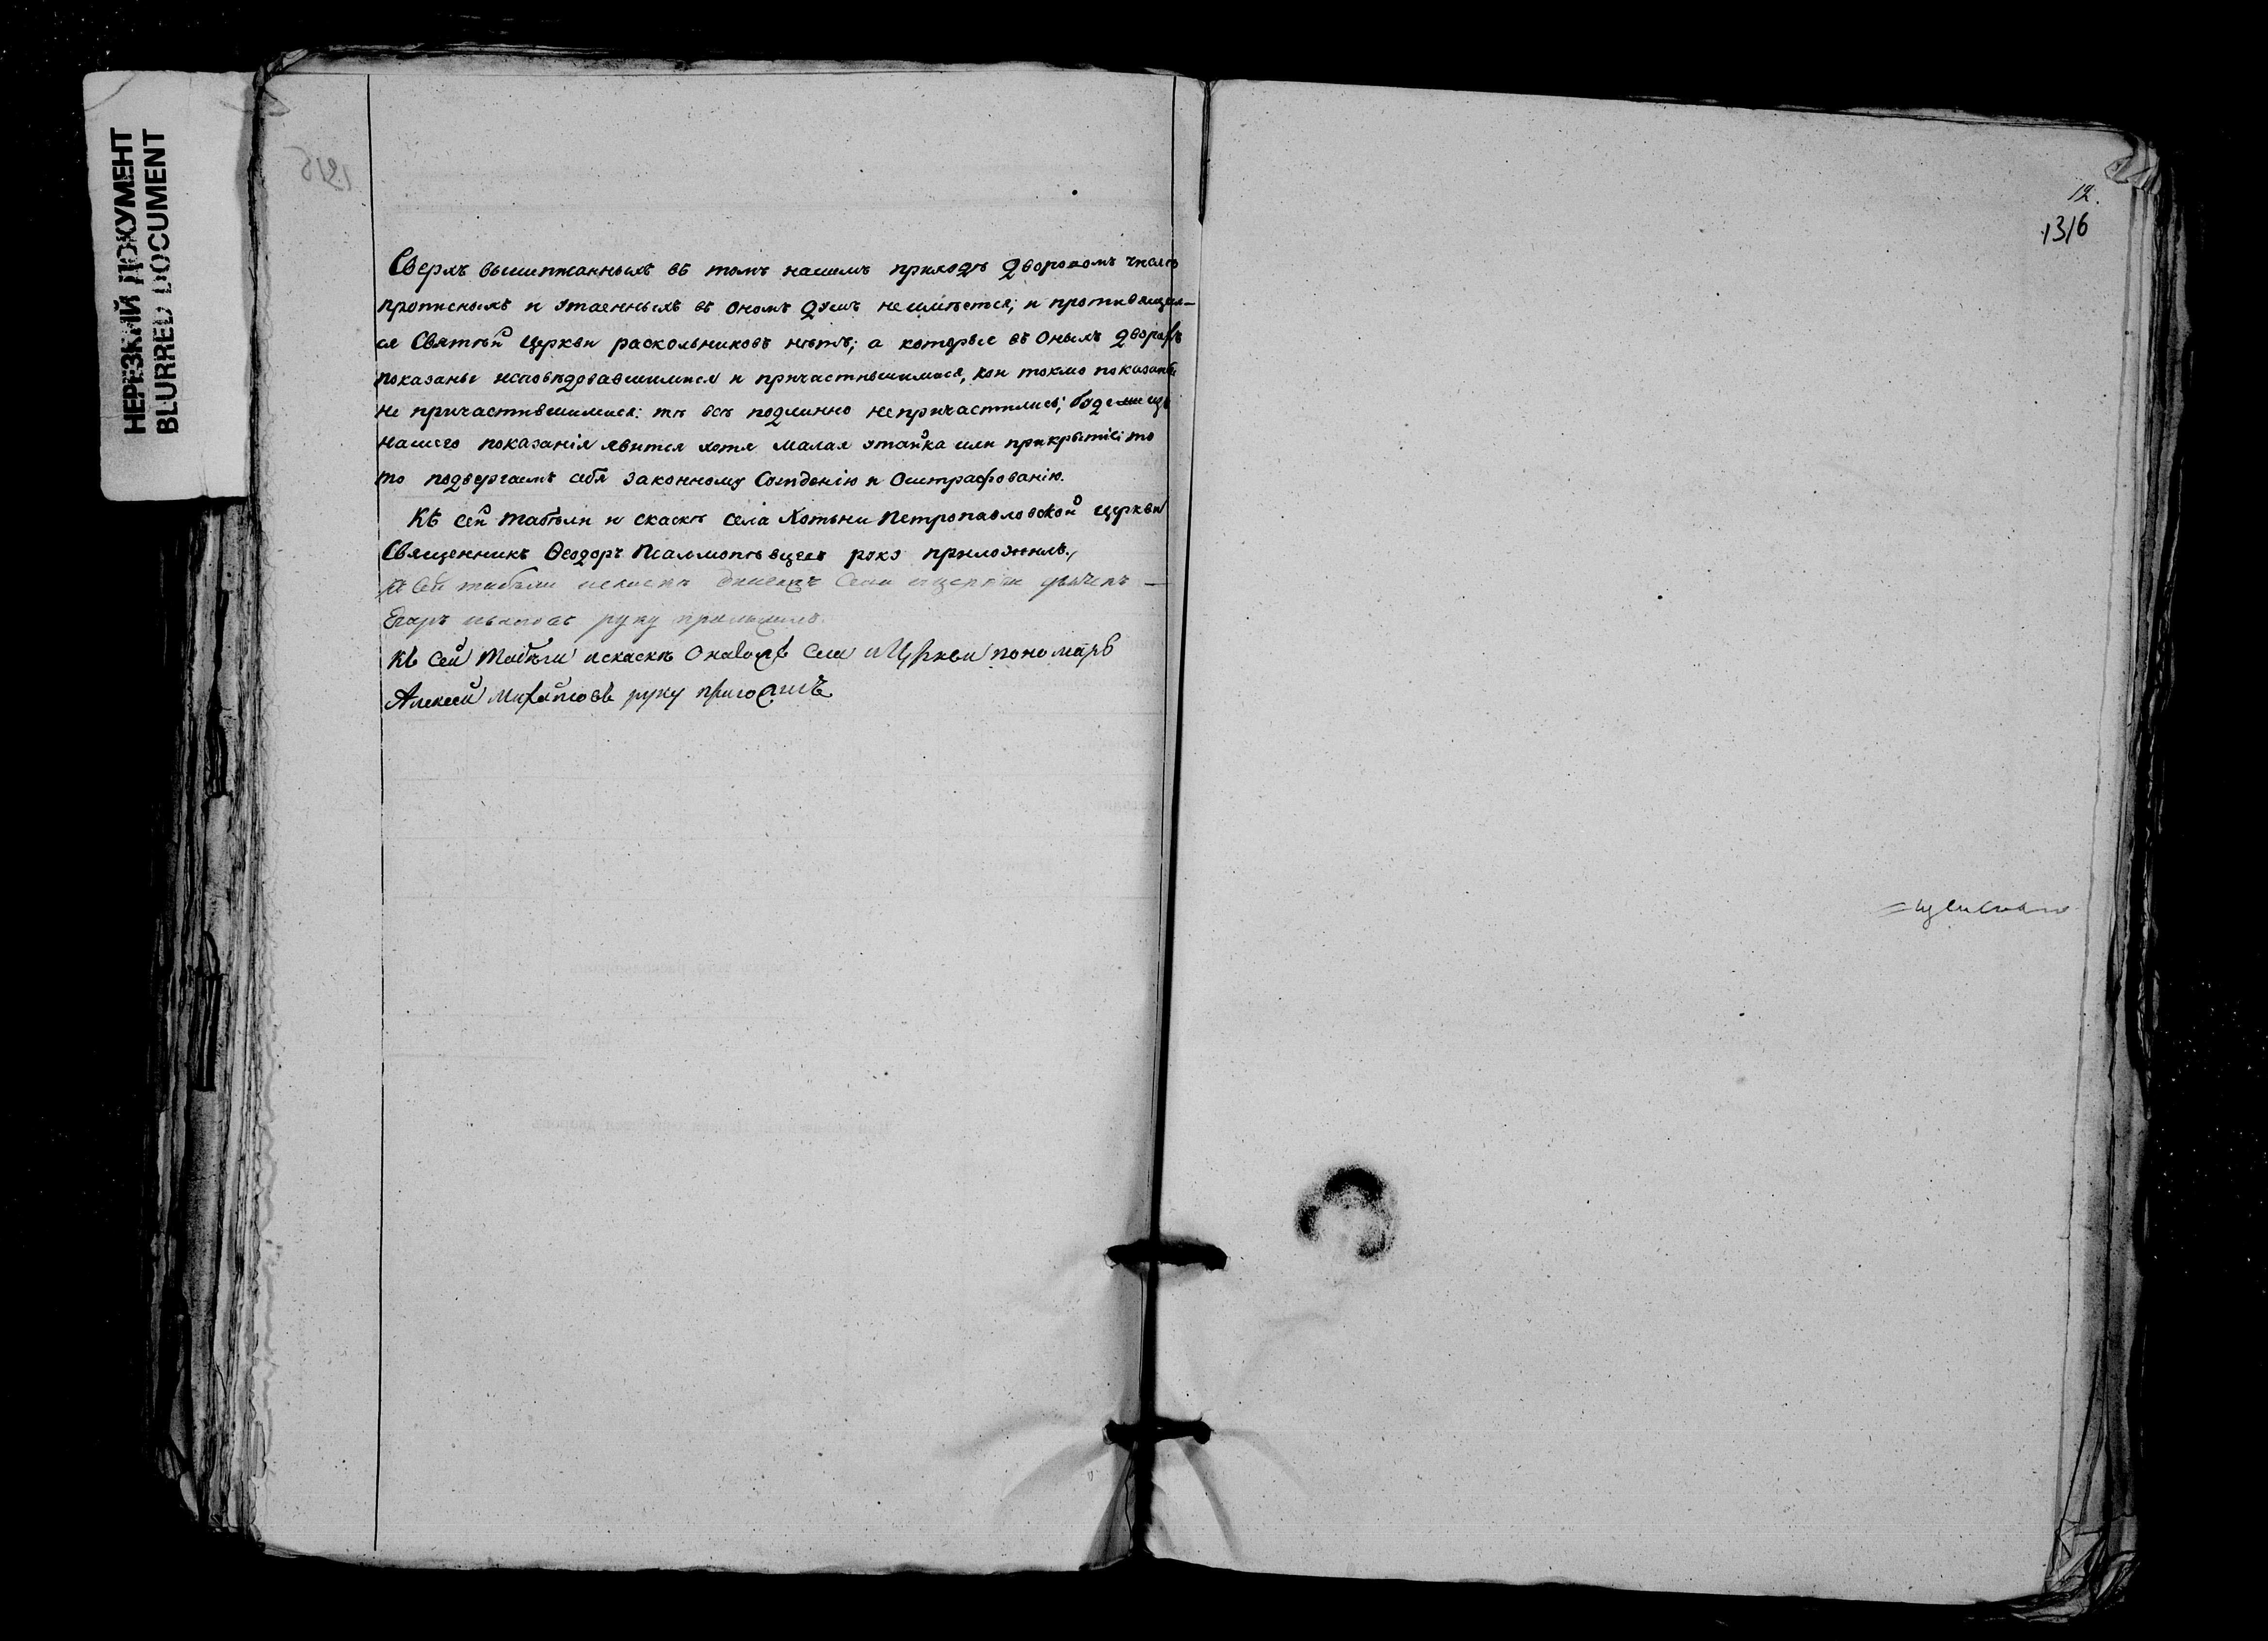 НЕРЕЗКИЙ ДОКУМЕНТ
BLURRED DOCUMENT
1315
Сверхъ вышеписанныхъ въ томъ нашемъ приходѣ дворовомъ числѣ
прописныхъ и утаенныхъ въ ономъ душъ неимѣется; и противящих-
ся Святѣй Церкви раскольниковъ нѣтъ; а которые въ оныхъ дворахъ
показаны исповѣдовавшимися и причастившимися, кои токмо показаны
не причастившимися: тѣ всѣ подлинно непричастились; буде изъ
нашего показанія явится хотя малая утайка или прикрытіе: то
то подвергаемъ себя законному Сужденію и Оштрафованію.
Къ сей табели и сказкѣ села Хотыни Петропавловской церкви
Священникъ Ѳеодоръ руку приложилъ.
Къ Сей табели искаскѣ села ицеркви дьячекъ
Егоръ руку приложилъ.
Къ Сей Табели искаскѣ Онаго Села иЦркви пономарь
Алексей Михайловъ руку приложилъ
12.
1316